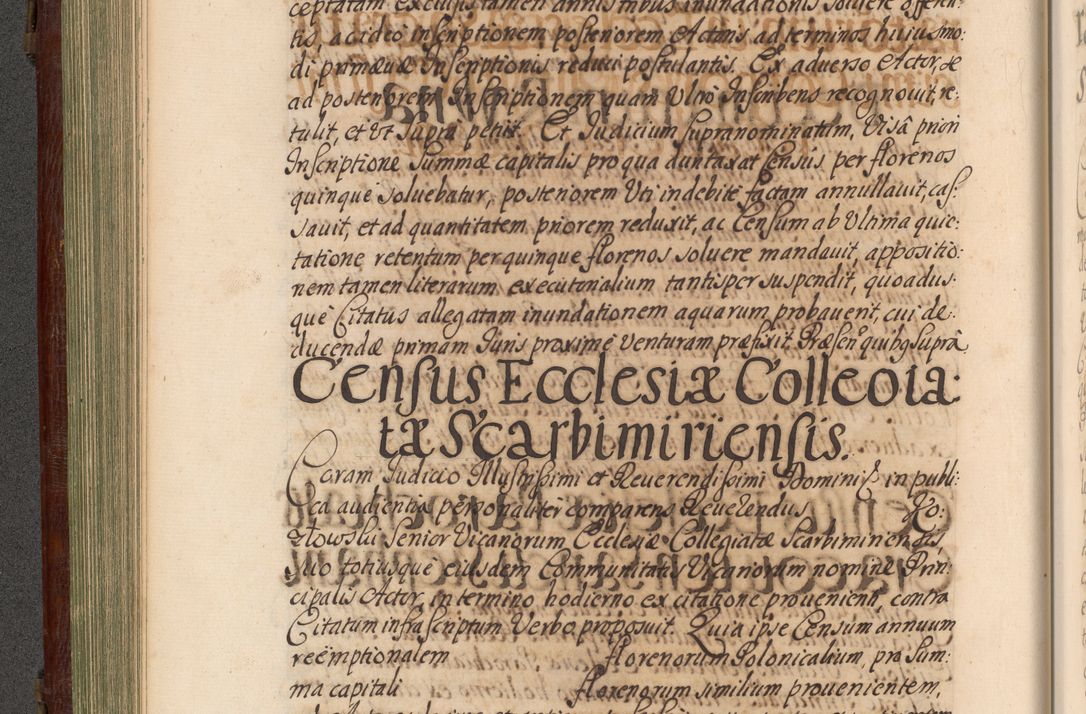 ceptatam exclusis tamen annis tribus inundationis soluere offeren
tis, ac ideo inscriptionem posteriorem Actoris ad terminos huiusmo:
di primæuæ Inscriptionis reduci postulantis. Ex aduerso Actor, se
ad posteriorem Inscriptionem quam Ultrò Inscribens recognouit, re:
tulit, et Ut supra petijt. Et Judicium supranominatum, Visâ priori
Inscriptione Summæ capitalis pro qua duntaxat Census per florenos
quinque soluebatur, posteriorem Uti indebite factam annullauit, cas:
sauit, et ad quantitatem priorem reduxit, ac Censum ab Ultima quie:
tatione retentum per quinque florenos soluere mandauit, appositio:
nem tamen literarum executorialium tantisper suspendit, quoadus:
què Citatus allegatam inundationem aquarum probauerit, cui de:
ducendæ primam Juris proxime venturam præfixit. Præsen̄ quibg supra
Census Ecclesiæ Collegia:
tæ Scarbimiriensis.
Coram Judicio Illustrissimi et Reuerendissimi Domini in publi:
ca audientia personaliter comparens Reuerendus Ko:
złowski Senior Vicariorum Ecclesiæ Collegiatæ Scarbimiriensis,
suo totiusque eiusdem Communitatis Vicariorum nomine Prin:
cipalis Actor, in termino hodierno ex citatione prouenienti, contra
Citatum infrascriptum Verbo proposuit. Quia ipse Censum annuum
reëmptionalem florenorum Polonicalium, pro Sum:
ma capitali florenorum similium prouenientem,